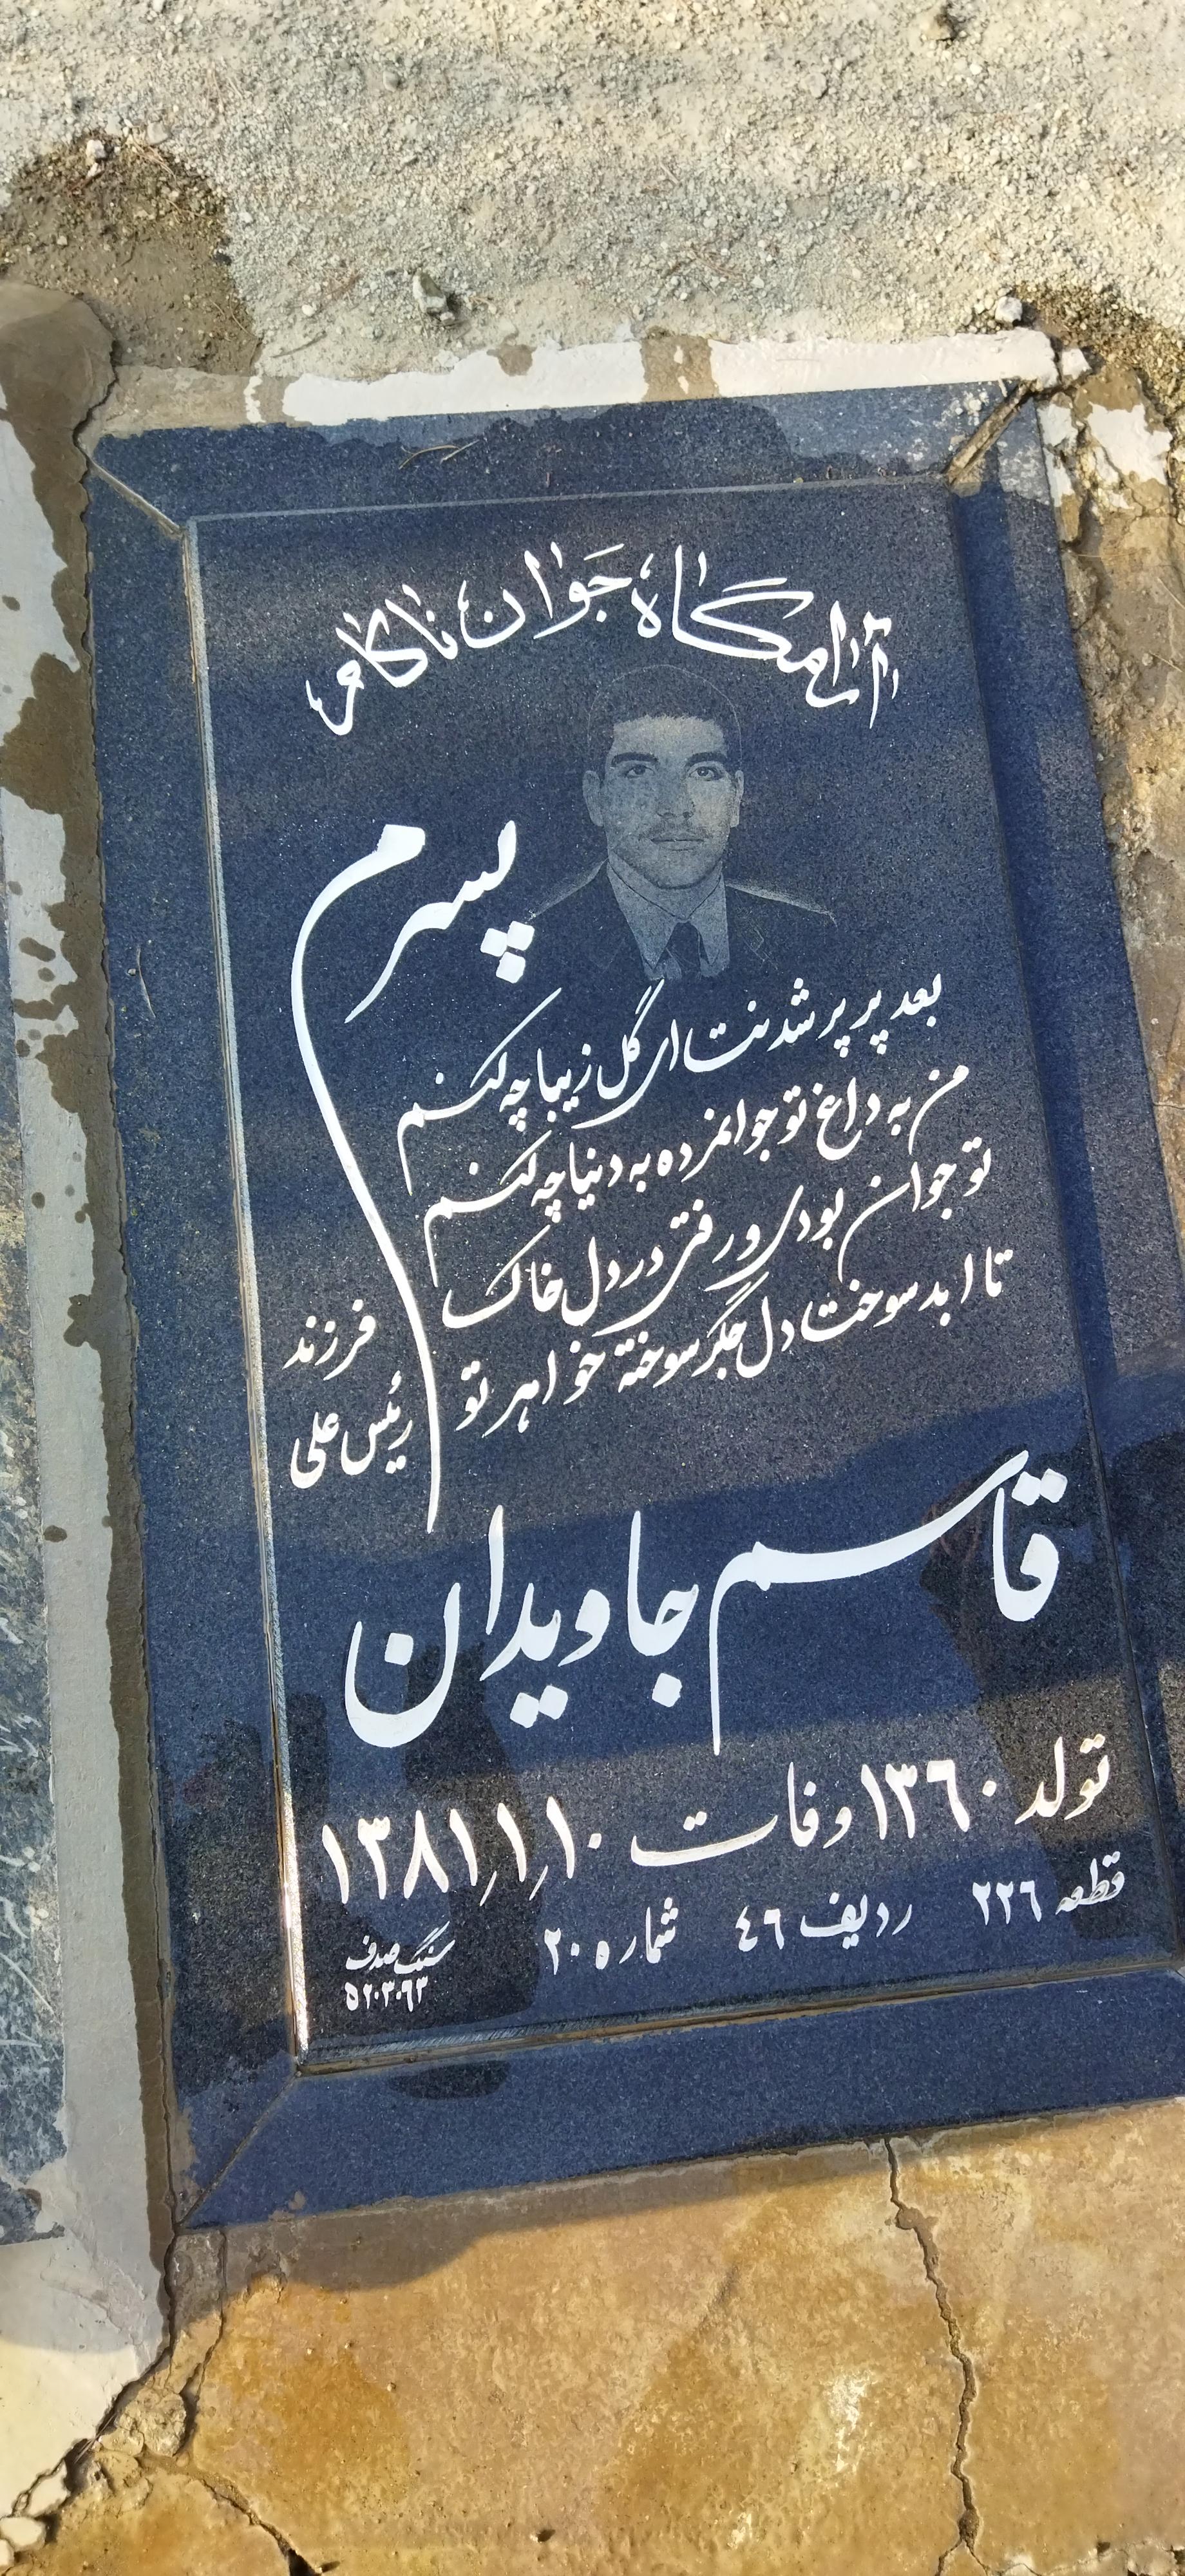 آرامگاه جوان ناکام
پسرم
بعد پر پر شدنت ای گل زیبا چه کنم
من به داغ تو جوانمرده به دنیا چه کنم
تو جوان بودی و رفتی در دل خاک
تا ابد سوخت دل جگر سوخته خواهر تو
فرزند
رئیس علی
قاسم جاویدان
تولد ۱۳۶۰ وفات ۱۳۸۱٫۱٫۱۰
قطعه ۲۲۶ ردیف ٤٦ شماره ۲۰
سنگ صدف
۵۲۰۳۰۹۳